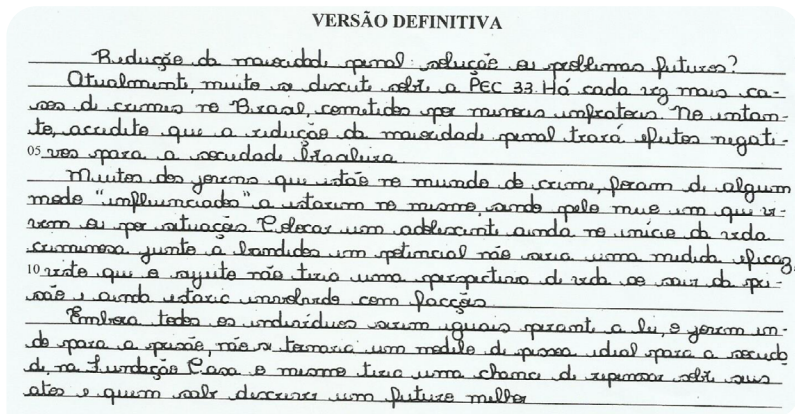 VERSÃO DEFINITIVA
Redução da maioridade penal: solução ou problemas futuros?
Atualmente, muito se discute sobre a PEC 33. Há cada vez mais ca-
sos de crimes no Brasil, cometidos por menores infratores. No entan-
te, acredito que a redução da maioridade penal trará efeitos negati-
05 vos para a sociedade brasileira.
Muitos dos jovens que estão no mundo do crime, foram de algum
modo "influenciados" a estarem no mesmo, sendo pelo meio em que vi-
vem ou por situações. Colocar um adolescente ainda no início da vida
criminosa junto à bandidos em potencial não seria uma medida eficaz,
10 visto que o sujeito não teria uma perspectiva de vida ao sair da pri-
são e ainda estaria envolvido com facções.
Embora todos os indivíduos serem iguais perante a lei, o jovem in-
do para a prisão, não se tornaria um modelo de pessoa ideal para a socieda
de, na Fundação Casa o mesmo teria uma chance de repensar sobre seus
atos e quem sabe descrever um futuro melhor